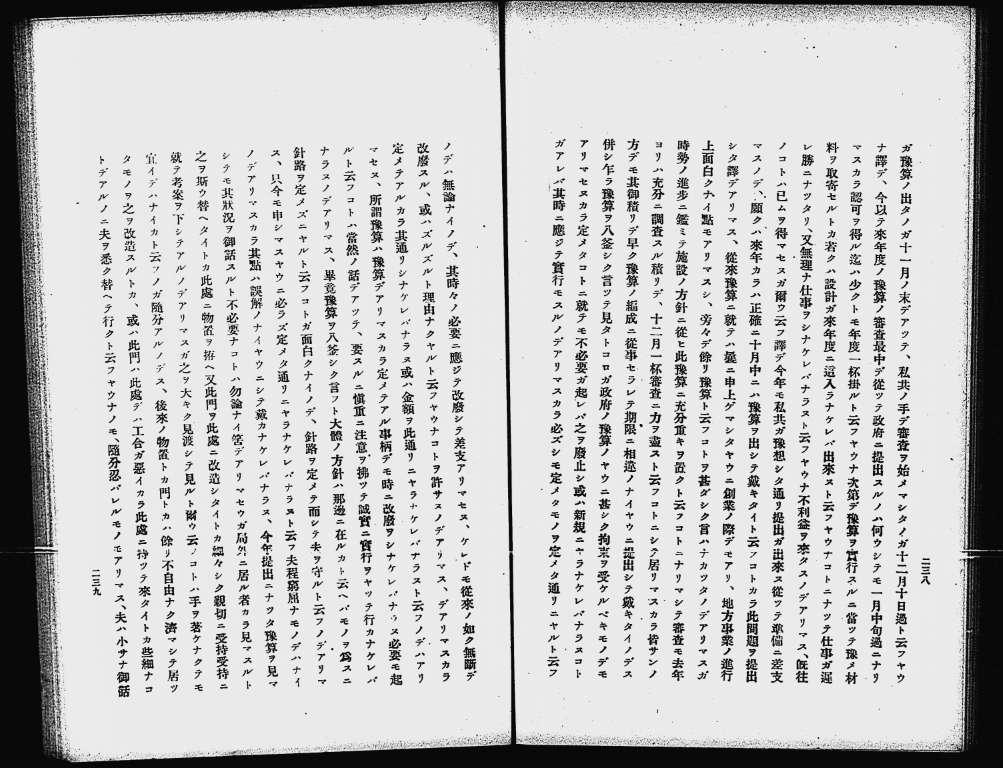 ガ豫算ノ出タノガ十一月ノ末デアツテ、私共ノ手デ審査ヲ始メマシタノガ十二月十日過ト云フヤウ
ナ譯デ、今以テ來年度ノ豫算ノ審査最中デ從ツテ政府ニ提出スルノハ何ウシテモ一月中旬過ニナリ
マスカラ認可ヲ得ル迄ハ少クトモ年度一杯掛ルト云フヤウナ次第デ豫算ヲ實行スルニ當ツテ豫メ材
料ヲ取寄セルトカ若クハ設計ガ來年度ニ這入ラナケレバ出來ヌト云フヤウナコトニナツテ仕事ガ遲
レ勝ニナツタリ、又無理ナ仕事ヲシナケレバナラヌト云フヤウナ不利益ヲ來タスノデアリマス、既往
ノコトハ已ムヲ得マセヌガ爾ウ云フ譯デ今年モ私共ガ豫想シタ通リ提出ガ出來ヌ從ツテ準備ニ差支
マスノデ、願クハ來年カラハ正確ニ十月中ニハ豫算ヲ出シテ戴キタイト云フコトカラ此問題ヲ提出
シタ譯デアリマス、從來豫算ニ就テハ曩ニ申上ゲマシタヤウニ創業ノ際デモアリ、地方事業ノ進行
上面白クナイ點モアリマスシ、旁々デ餘リ豫算ト云フコトヲ甚ダシク言ハナカツタノデアリマスガ
時勢ノ進步ニ鑑ミテ施設ノ方針ニ從ヒ此豫算ニ充分重キヲ置クト云フコトニナリマシテ審査モ去年
ヨリハ充分ニ調査スル積リデ、十二月一杯審査ニ力ヲ盡スト云フコトニシテ居リマスカラ皆サンノ
方デモ其御積リデ早ク豫算ノ編成ニ從事セラレテ期限ニ相違ノナイヤウニ提出シテ戴キタイノデス
併シ乍ラ豫算ヲ八釜シク言ツテ見タトコロガ政府ノ豫算ノヤウニ甚シク拘束ヲ受ケルベキモノデモ
アリマセヌカラ定メタコトニ就テモ不必要ガ起レバ之ヲ廢止シ或ハ新規ニヤラナケレバナラヌコト
ガアレバ其時ニ應ジテ實行モスルノデアリマスカラ必ズシモ定メタモノヲ定メタ通リニヤルト云フ
二三八
ノデハ無論ナイノデ、其時々ノ必要ニ應ジテ改廢シテ差支アリマセヌ、ケレドモ從來ノ如ク無斷デ
改廢スル、或ハズルズルト理由ナクヤルト云フヤウナコトヲ許サヌノデアリマス、デアリマスカラ
定メテアルカラ其通リシナケレバナラヌ或ハ金額ヲ此通リニヤラナケレバナラヌト云フノデハアリ
マセヌ、所謂豫算ハ豫算デアリマスカラ定メテアル事柄デモ時ニ改廢ヲシナケレバナラヌ必要モ起
ルト云フコトハ當然ノ話デアツテ、要スルニ愼重ニ注意ヲ拂ツテ誠實ニ實行ヲヤツテ行カナケレバ
ナラヌノデアリマス、畢竟豫算ヲ八釜シク言フト大體ノ方針ハ那邊ニ在ルカト云ヘバモノヲ爲スニ
針路ヲ定メズニヤルト云フコトガ面白クナイノデ、針路ヲ定メテ而シテ夫ヲ守ルト云フノデアリマ
ス、只今モ申シマスヤウニ必ラズ定メタ通リニヤラナケレバナラヌト云フ夫程窮屈ナモノデハナイ
ノデアリマスカラ其點ハ誤解ノナイヤウニシテ戴カナケレバナラヌ、今年提出ニナツタ豫算ヲ見マ
シテモ其狀況ヲ御話スルト不必要ナコトハ勿論ナイ筈デアリマセウガ局外ニ居ル者カラ見マスルト
之ヲ斯ウ替ヘタイトカ此處ニ物置ヲ拵ヘ又此門ヲ此處ニ改造シタイトカ細々シク親切ニ受持受持ニ
就テ考案ヲ下シテアルノデアリマスガ之ヲ大キク見渡シテ見ルト爾ウ云フコトハ手ヲ著ケナクテモ
宜イデハナイカト云フノガ隨分アルノデス、後來ノ物置トカ門トカハ餘リ不自由ナク濟マシテ居ツ
タモノヲ之ヲ改造スルトカ、或ハ此門ハ此處デハ工合ガ惡イカラ此處ニ持ツテ來タイトカ些細ナコ
トデアルノニ夫ヲ悉ク替ヘテ行クト云フヤウナノモ、隨分忍バレルモノモアリマス、夫ハ小サナ御話
二三九